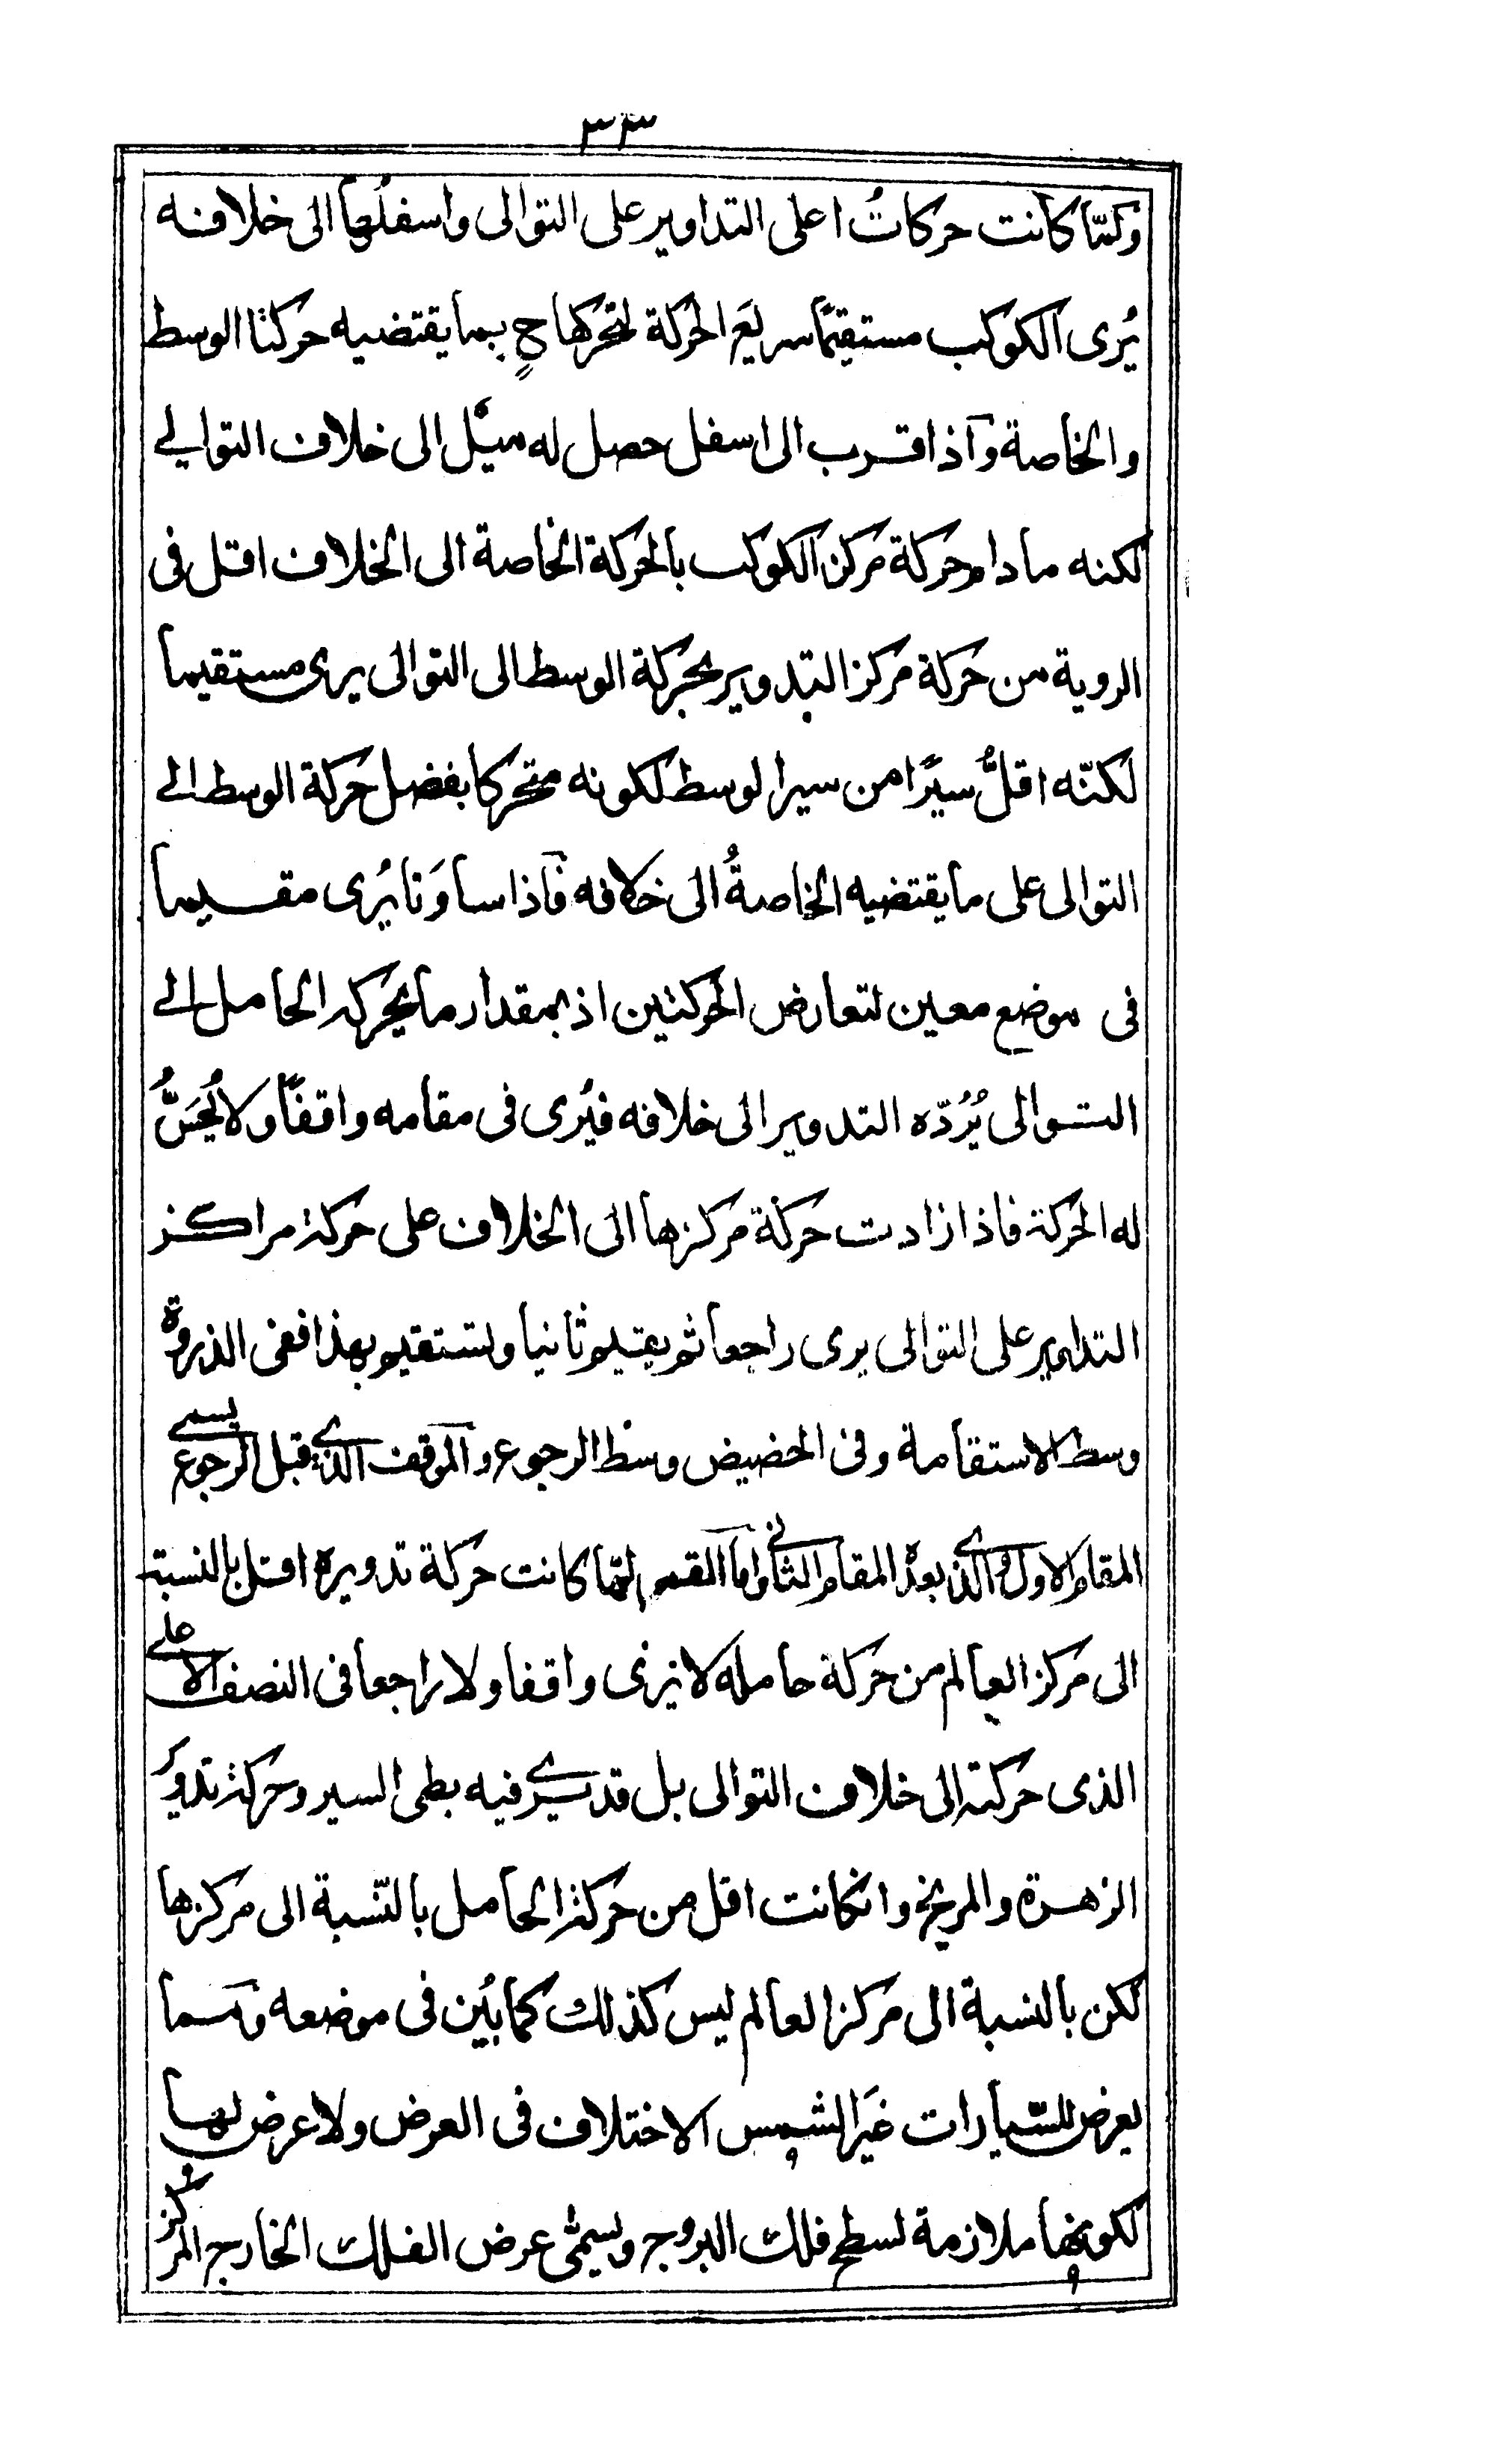 ٣٣
ولمّا كانت حركاتُ اعلى التداوير على التوالى واسفلُها الى خلافه
يُرى الكوكب مستقيمًا سريعَ الحركة لتحركها ح بما يقتضيه حركتا الوسط
والخاصة واذا قرب الى اسفل حصل له ميلٌ الى خلاف التوالے
لكنه مادام حركة مركز الكوكب بالحركة الخاصة الى الخلاف اقل فى
الروية من حركة مركز التدوير بحركة الوسط الى التوالى يرى مستقيما
لكنّه اقلُّ سيرًا من سير الوسط لكونه متحركا بفضل حركة الوسط الے
التوالى على ما يقتضيه الخاصةُ الى خلافه فاذا ساوَتا يُرى مقيما
فى موضع معين لتعارض الحركتين اذ بمقدار ما يحركه الحامل الے
التوالى يُرُدّه التدوير الى خلافه فيُرى فى مقامه واقفًا ولا يُحَسُّ
له الحركة فاذا زادت حركة مركزها الى الخلاف على حركة مراكز
التداوير على التوالى يرى راجعا ثم يقيم ثانيا ويستقيم بهذا ففى الذروة
وسط الاستقامة وفى الحضيض وسط الرجوع والموقف الذى قبل الرجوع يسمے
المقام الاول والذى بعده المقام الثانى واما القمر لمّا كانت حركة تدويره اقل بالنسبة
الى مركز العالم من حركة حامله لا يرى واقفا ولا راجعا فى النصف الاعلے
الذى حركته الى خلاف التوالى بل قد يرى فيه بطى السير وحركة تدوير
الزهرة والمريخ وانكانت اقل من حركة الحامل بالنّسبة الى مركزها
لكن بالنسبة الى مركز العالم ليس كذلك كما بُين فى موضعه ومما
يعرض للسّيارات غيرَ الشمس الاختلاف فى العرض ولا عرض لها
لكونها ملازمة لسطح فلك البروج ويسمّى عرض الفلك الخارج المركز